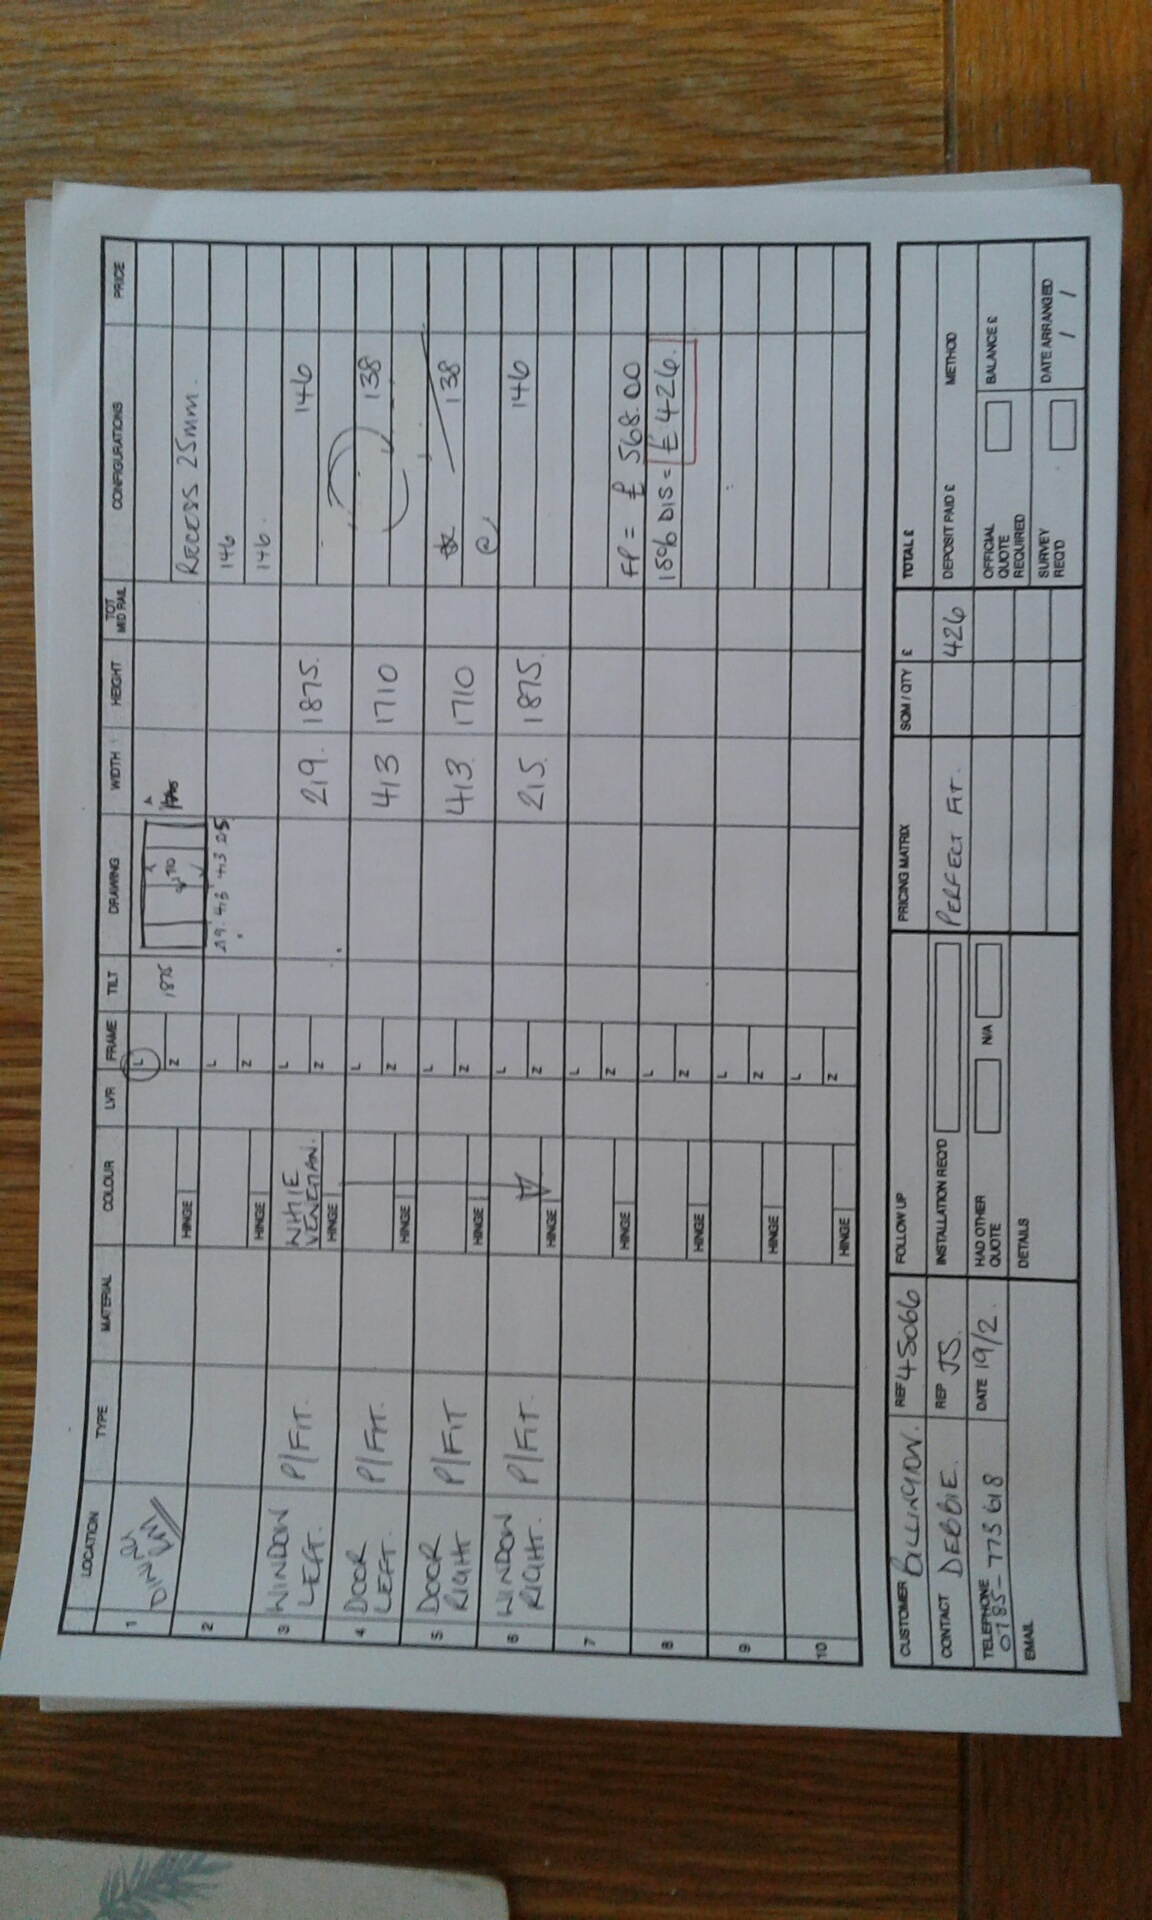 LOCATION TYPE MATERIAL COLOUR LVR FRAME TILT DRAWING WIDTH HEIGHT TOT MID RAIL CONFIGURATIONS PRICE
1 HINGE L Z 1875 1710
RECESS 25mm.
2 HINGE L Z 219. 413 413 215 146
146.
3 WINDOW LEFT. P/FIT. WHITE VENETIAN. HINGE L Z 219. 1875. 146
4 DOOR LEFT. P/FIT. HINGE L Z 413 1710 138
5 DOOR RIGHT P/FIT HINGE L Z 413. 1710 138
6 WINDOW RIGHT. P/FIT. HINGE L Z 215. 1875. 146
7 HINGE L Z FP = £ 568.00
8 HINGE L Z DIS = £ 426.
9 HINGE L Z
10 HINGE L Z
CUSTOMER REF 45066 FOLLOW UP PRICING MATRIX SQM / QTY £ TOTAL £
CONTACT DEBBIE. REP JS. INSTALLATION REQ'D PERFECT FIT. 426 DEPOSIT PAID £ METHOD
TELEPHONE 0785- 773 618 DATE 19/2. HAD OTHER QUOTE N/A OFFICIAL QUOTE REQUIRED BALANCE £
EMAIL DETAILS SURVEY REQ'D DATE ARRANGED / /